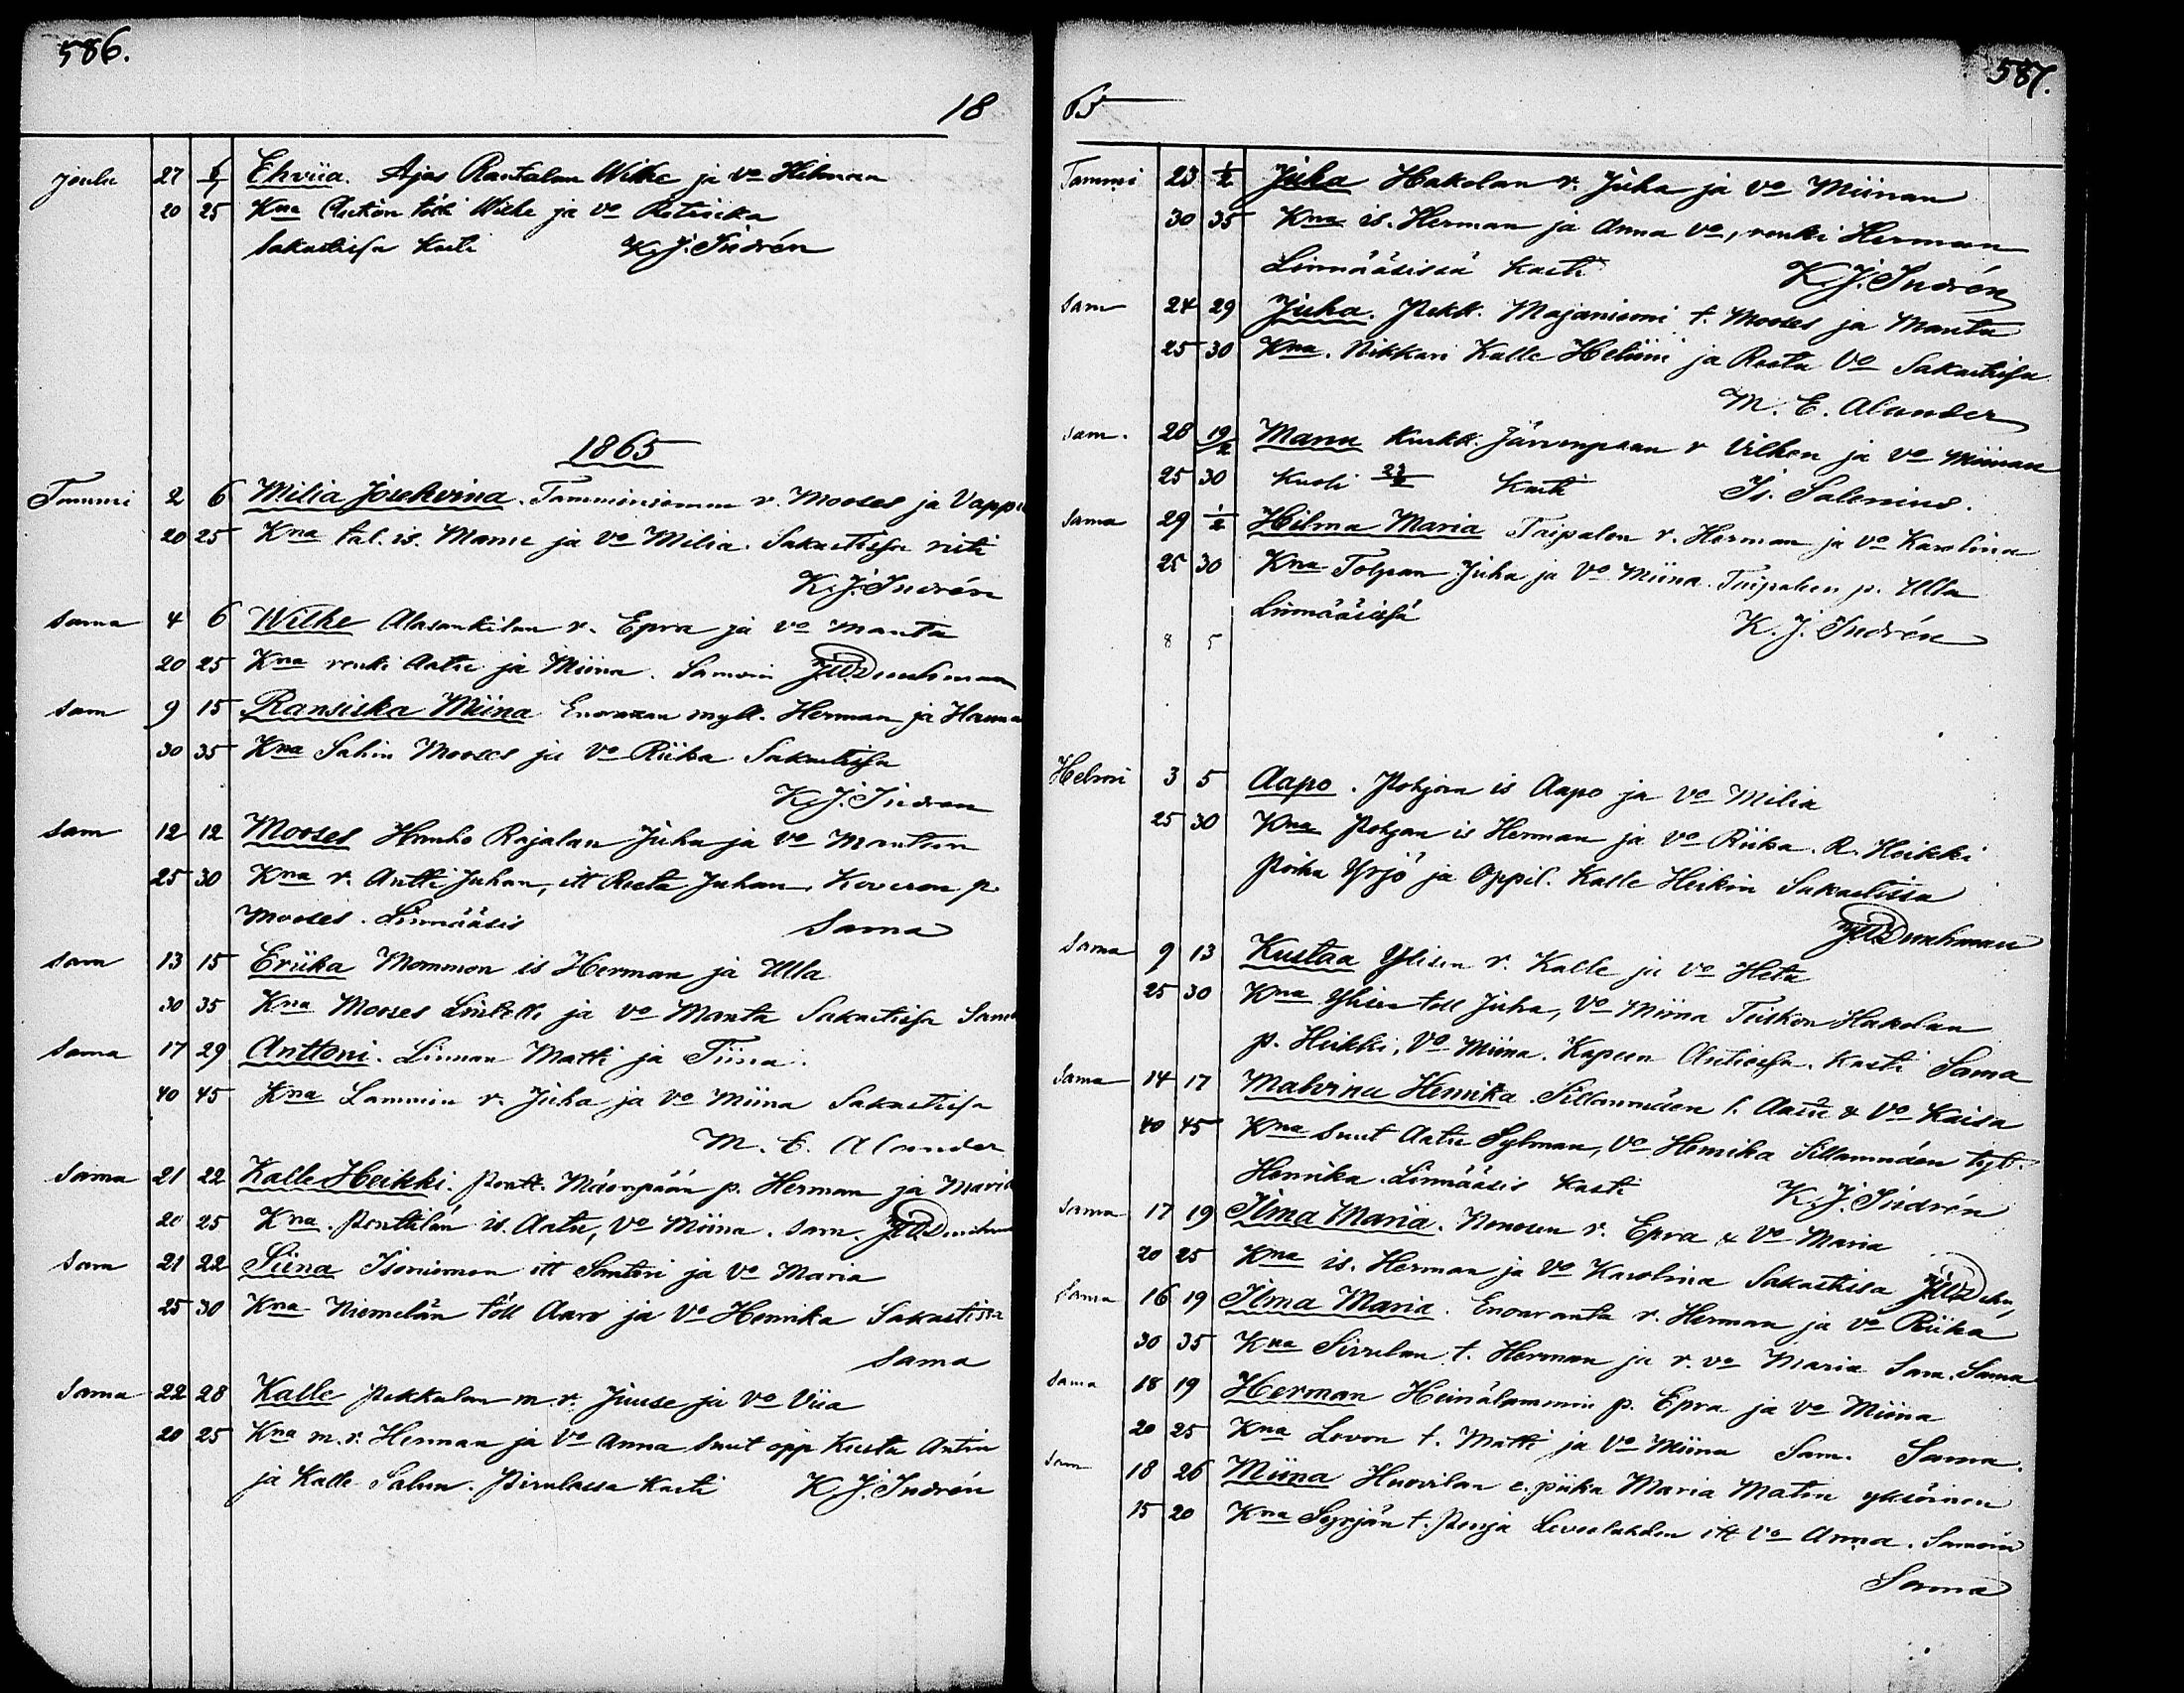 586.
18
Joulu 27 6/1 Ehviia. Ajos Rantalan Wilke ja vo Hilman
20 25 Kna töll Wilke ja vo
Sakastissa Kasti K. J. Indrén
1865
Tammi 2 6 Milia Josehvina. Tamminiemen r. Mooses ja Vappu
20 25 Kna tal. is. Manu ja vo Milia. Sakastissa risti
K. J. Indrén
Sama 4 6 Wilke Alasankilan r. Epra ja vo Manta
20 25 Kna renki Aatu ja Miina. Samoin
Sam 9 15 Ransiska Miina Enoranan myll. Herman ja Hanna
30 35 Kna Sahin Mooses ja vo Riika Sakastissa
K. J. Indren
Sam 12 12 Mooses Hanho Rajalan Juha ja vo Mantan
25 30 Kna r. Antti Juhan, itt Reeta Juhan, Koveron p.
Mooses. Linnääsis Sama
Sam 13 15 Eriika Mommon is Herman ja Ulla
30 35 Kna Mooses Lintelli ja vo Manta Sakastissa Sama
Sama 17 29 Anttoni. Linnan Matti ja Tiina.
40 45 Kna Lammin r. Juha ja vo Miina Sakastissa
M. E. Alander
Sama 21 22 Kalle Heikki. Pentt. Mäenpään p. Herman ja Maria
20 25 Kna. Penttilän is. Aatu, vo Miina. Sam.
Sam 21 22 Siina Isoniemen itt Santeri ja vo Maria
25 30 Kna Niemelän töll Aaro ja vo Henrika Sakastissa
Sama
Sama 22 28 Kalle Pekkalan m. r. Juuse ja vo Viia
20 25 Kna m. r. Herman ja vo Anna Suut opp Kusta Antin
ja Kalle Salun. Pirulassa Kasti K. J. Indrén
587.
65
Tammi 23 1/2 Juha Hakolan r. Juha ja vo Miinan
30 35 Kna is. Herman ja Anna vo, renki Herman
Linnääsissä Kasti K. J. Indrén
Sam 24 29 Juha. Pekk. Majaniemi t. Mooses ja Manta
25 30 Kna. Nikkari Kalle Heliini ja Reeta vo Sakastissa
M. E. Alander
Sam. 28 19/2 Manu Kurkk. Järvenpään r Vilhon ja vo Miinan
25 30 Kuoli Kasti Is. Salenius.
Sama 29 1/2 Hilma Maria Taipalen r. Herman ja vo Karolina
25 30 Kna Tolpan Juha ja vo Miina. Taipaleen p. Ulla
Linnääsissä K. J. Indrén
8 5
Helmi 3 5 Aapo. Pohjan is Aapo ja vo Milia
25 30 Kna Pohjan is Herman ja vo Riika. R. Heikki
Poika Yrjö ja Oppil. Kalle Heikin Sakastissa
Sama 9 13 Kustaa Ylisen r. Kalle ja vo Heta
25 30 Kna Ylisen töll Juha, vo Miina Tuiskon Hakolan
p. Heikki, vo Miina. Kapeen Kasti Sama
Sama 14 17 Malvina Henrika. Sillanmäen l. Aatu & vo Kaisa
40 45 Kna Suut Aatu Sylman, vo Henrika Sillanmäen tyt.
Henrika. Linnääsis Kasti K. J. Indrén
Sama 17 19 Ilma Maria. Nenosen r. Epra & vo Maria
20 25 Kna is. Herman ja vo Karolina Sakastissa
Sama 16 19 Ilma Maria. Enonranta r. Herman ja vo Riika
30 35 Kna Sirulan t. Herman ja r. vo Maria Sam. Sama
Sama 18 19 Herman Heinälammin p. Epra ja vo Miina
20 25 Kna Levon t. Matti ja vo Miina Sam. Sama.
Sam 18 26 Miina Huovilan e. piika Maria Matin yksöinen
15 20 Kna Syrjän t. Penja Leveelahden itt vo Anna. Samoin
Sama